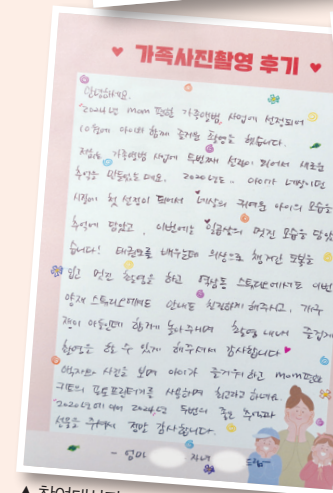 ♥ 가족사진촬영 후기 ♥
안녕하세요.
"2024년 mom 편한 가족앨범" 사업에 선정되어
10월에 아이와 함께 즐거운 촬영을 했습니다.
저희는 가족앨범 사업에 두번째 선정이 되어서 새로운
추억을 만들었는데요. 2020년도 - 아이가 네살이던
시절에 첫 선정이 되어서 네살의 귀여운 아이의 모습을
추억에 담았고, 이번에는 의 멋진 모습을 담았
습니다! 태권도를 배우는데 의상으로 챙겨간 도복을
입고 멋진 촬영을 하고 스튜디오에서도 이번
양재 스튜디오에서도 안내도 친절하게 해주시고,
아들인데 함께 놀아주시며 촬영 내내 즐겁게
촬영을 할 수 있게 해주셔서 감사합니다 ♥
액자와 사진을 보며 아이가 즐거워하고 mom편한
키트의 포토프린터기를 사용하며 최고라고 하네요.
"2020년에 이어 2024년 두번의 좋은 추억과
선물을 주셔서 정말 감사합니다.
- 엄마 자녀 드림 -